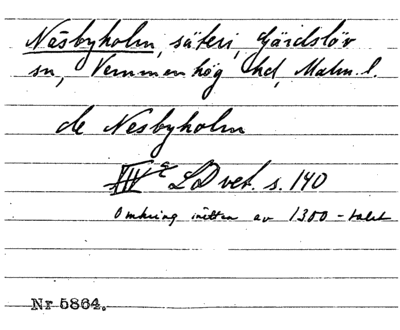 Näsbyholm, säteri, Gärdslöv
sn, Vemmenhög hd, Malm. l.
de Nesbyholm
LD vet. s. 140
Omkring mitten av 1300-talet
Nr 5864.